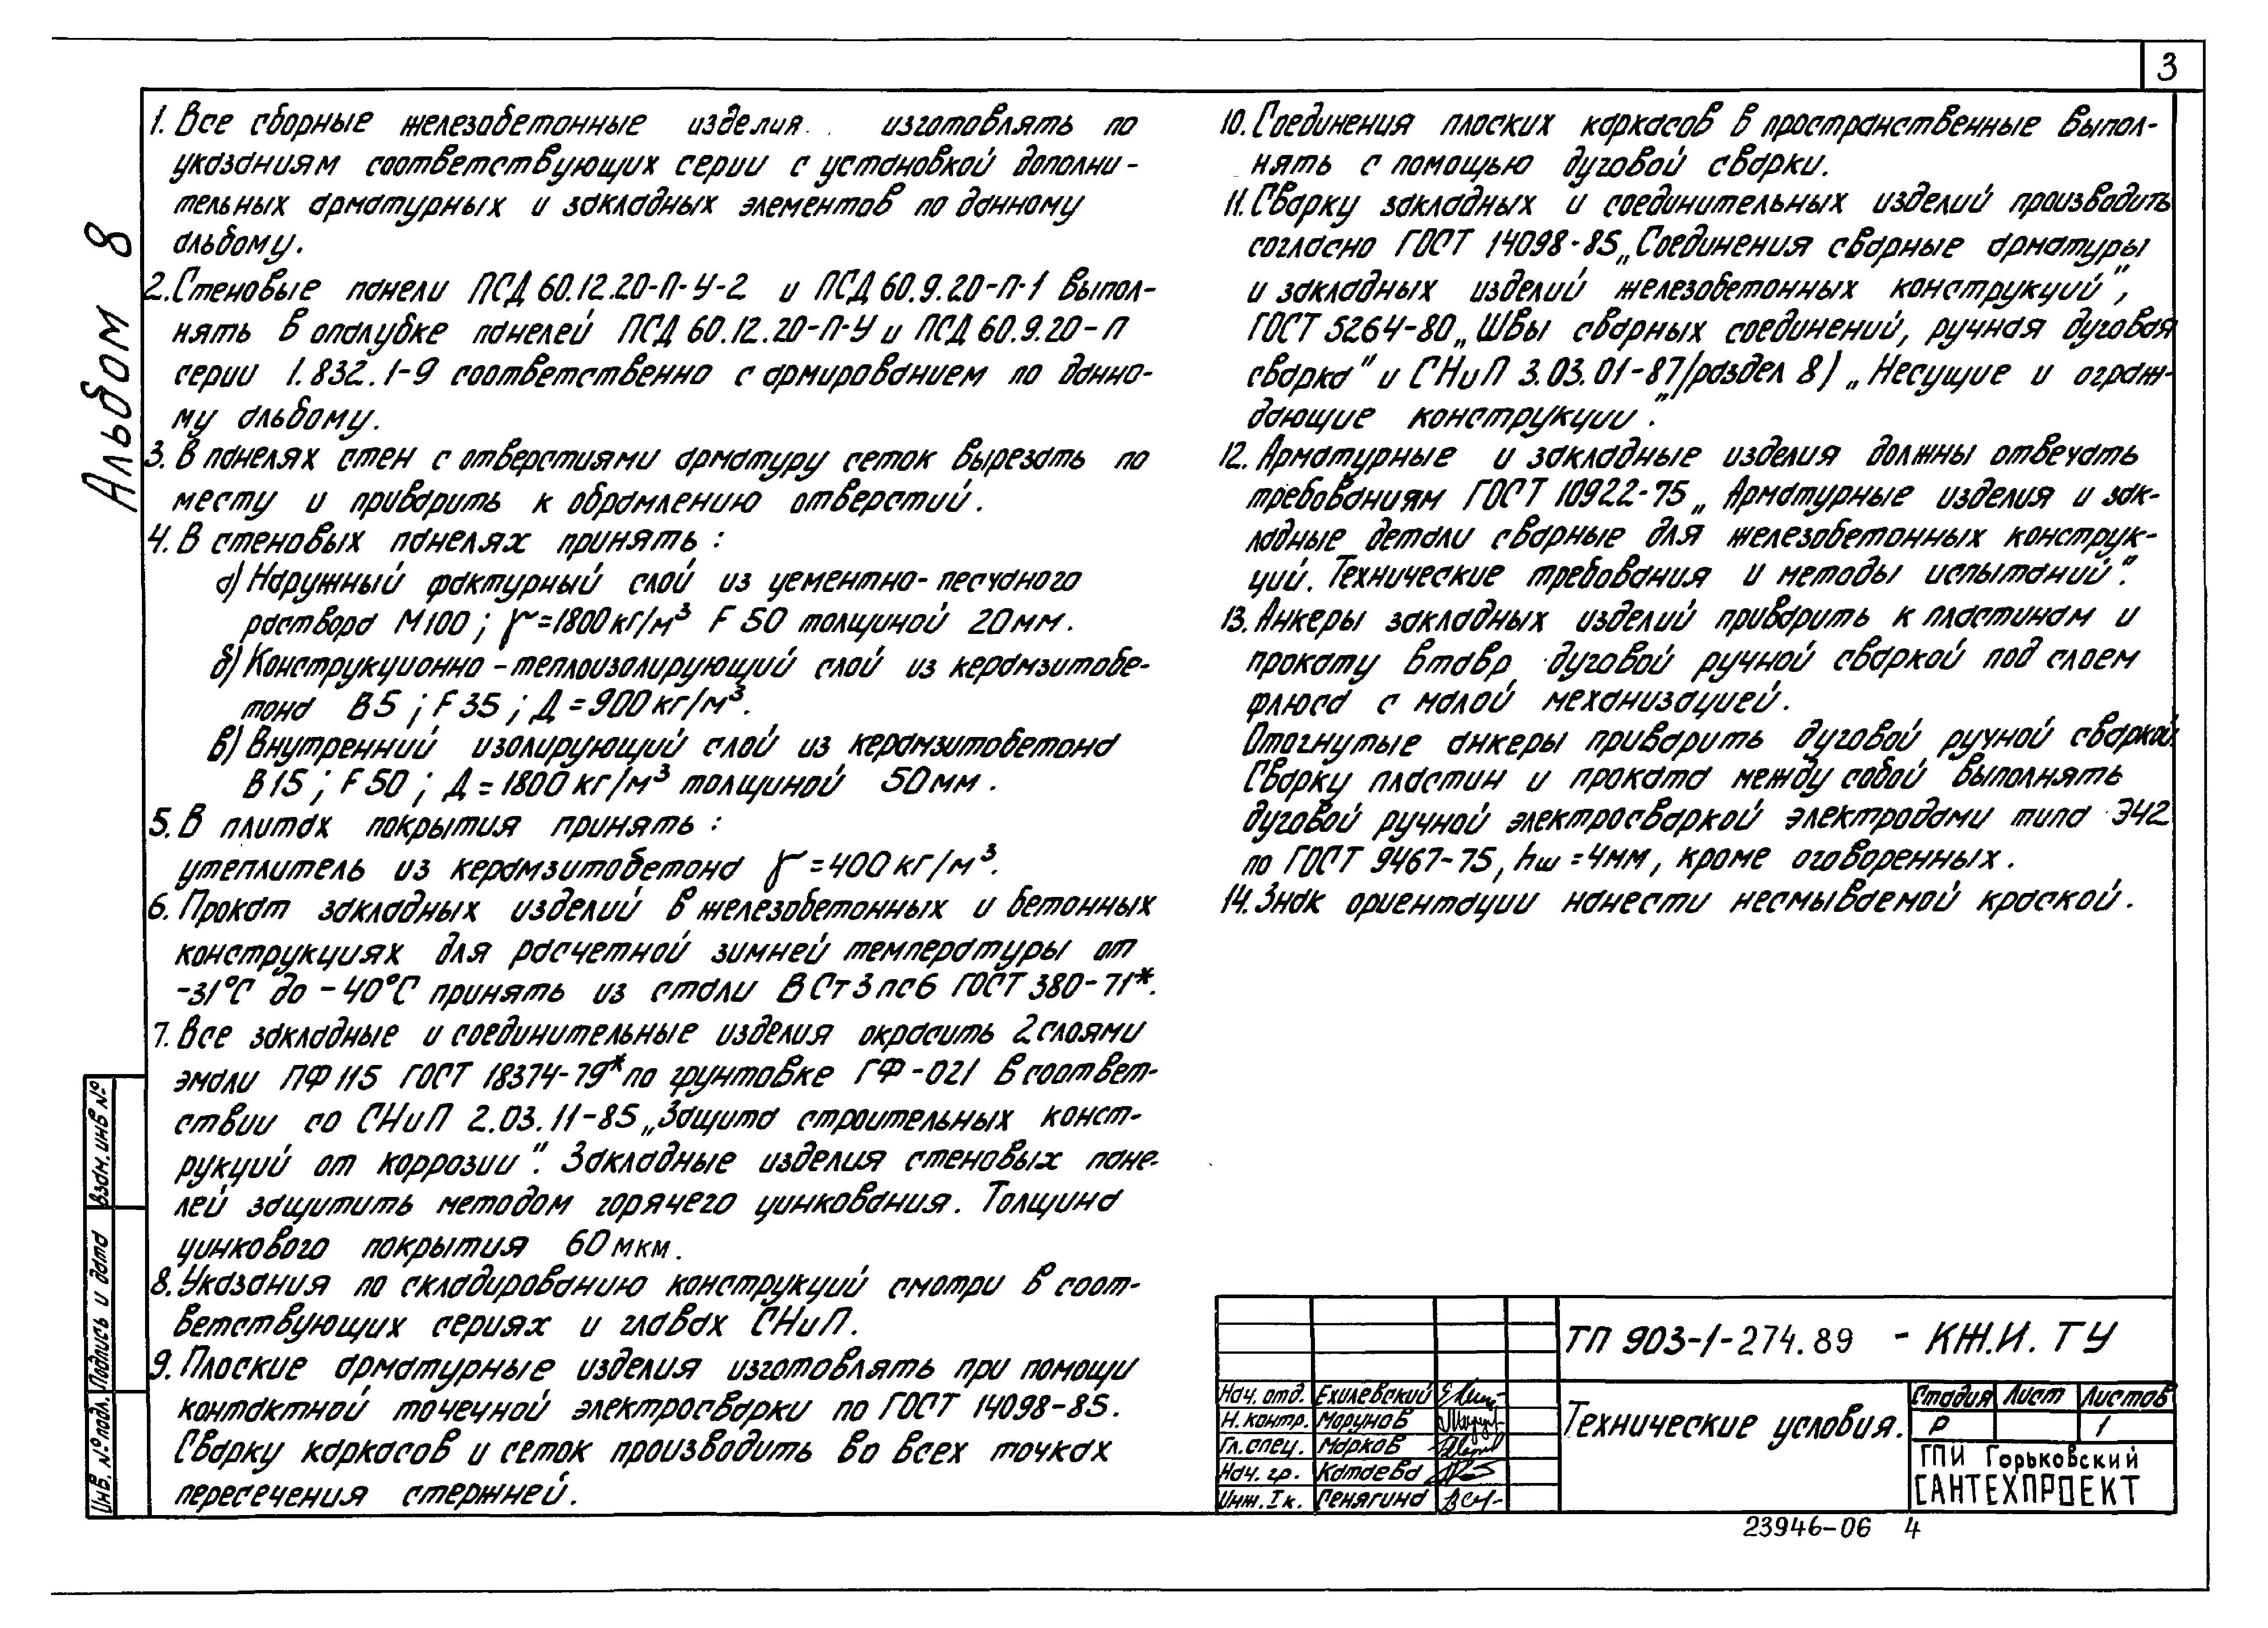 3
Альбом 8
1. Все сборные железобетонные изделия изготовлять по
указаниям соответствующих серии с установкой дополни-
тельных арматурных и закладных элементов по данному
альбому.
2. Стеновые панели ПСД 60.12.20-П-У-2 и ПСД 60.9.20-П-1 выпол-
нять в опалубке панелей ПСД 60.12.20-П-У и ПСД 60.9.20-П
серии 1.832.1-9 соответственно с армированием по данно-
му альбому.
3. В панелях стен с отверстиями арматуру сеток вырезать по
месту и приварить к обрамлению отверстий.
4. В стеновых панелях принять:
а) Наружный фактурный слой из цементно-песчаного
раствора М100; γ=1800кг/м³ F 50 толщиной 20мм.
б) Конструкционно-теплоизолирующий слой из керамзитобе-
тона В5; F35; Д=900кг/м³.
в) Внутренний изолирующий слой из керамзитобетона
В15; F50; Д=1800кг/м³ толщиной 50мм.
5. В плитах покрытия принять:
утеплитель из керамзитобетона γ=400кг/м³.
6. Прокат закладных изделий в железобетонных и бетонных
конструкциях для расчетной зимней температуры от
-31°С до -40°С принять из стали ВСт3пс6 ГОСТ 380-71*.
7. Все закладные и соединительные изделия окрасить 2 слоями
эмали ПФ 115 ГОСТ 18374-79* по грунтовке ГФ-021 в соответ-
ствии со СНиП 2.03.11-85 „Защита строительных конст-
рукций от коррозии". Закладные изделия стеновых пане-
лей защитить методом горячего цинкования. Толщина
цинкового покрытия 60мкм.
8. Указания по складированию конструкций смотри в соот-
ветствующих сериях и главах СНиП.
9. Плоские арматурные изделия изготовлять при помощи
контактной точечной электросварки по ГОСТ 14098-85.
Сварку каркасов и сеток производить во всех точках
пересечения стержней.
10. Соединения плоских каркасов в пространственные выпол-
нять с помощью дуговой сварки.
11. Сварку закладных и соединительных изделий производить
согласно ГОСТ 14098-85 „Соединения сварные арматуры
и закладных изделий железобетонных конструкций",
ГОСТ 5264-80 „Швы сварных соединений, ручная дуговая
сварка" и СНиП 3.03.01-87/раздел 8) „Несущие и ограж-
дающие конструкции".
12. Арматурные и закладные изделия должны отвечать
требованиям ГОСТ 10922-75 „Арматурные изделия и зак-
ладные детали сварные для железобетонных конструк-
ций. Технические требования и методы испытаний".
13. Анкеры закладных изделий приварить к пластинам и
прокату втавр дуговой ручной сваркой под слоем
флюса с малой механизацией.
Отогнутые анкеры приварить дуговой ручной сваркой.
Сварку пластин и проката между собой выполнять
дуговой ручной электросваркой электродами типа Э42
по ГОСТ 9467-75, hш=4мм, кроме оговоренных.
14. Знак ориентации нанести несмываемой краской.
Взам. инв №
Подпись и дата
Инв. № подл.
ТП 903-1-274.89 - КЖ.И. ТУ
Нач. отд. Ехилевский
Н. контр. Марунов
Гл. спец. Марков
Нач. гр. Катаева
Инж. I к. Сенягина
Технические условия.
Стадия Лист Листов
Р 1
ГПИ Горьковский
САНТЕХПРОЕКТ
23946-06 4